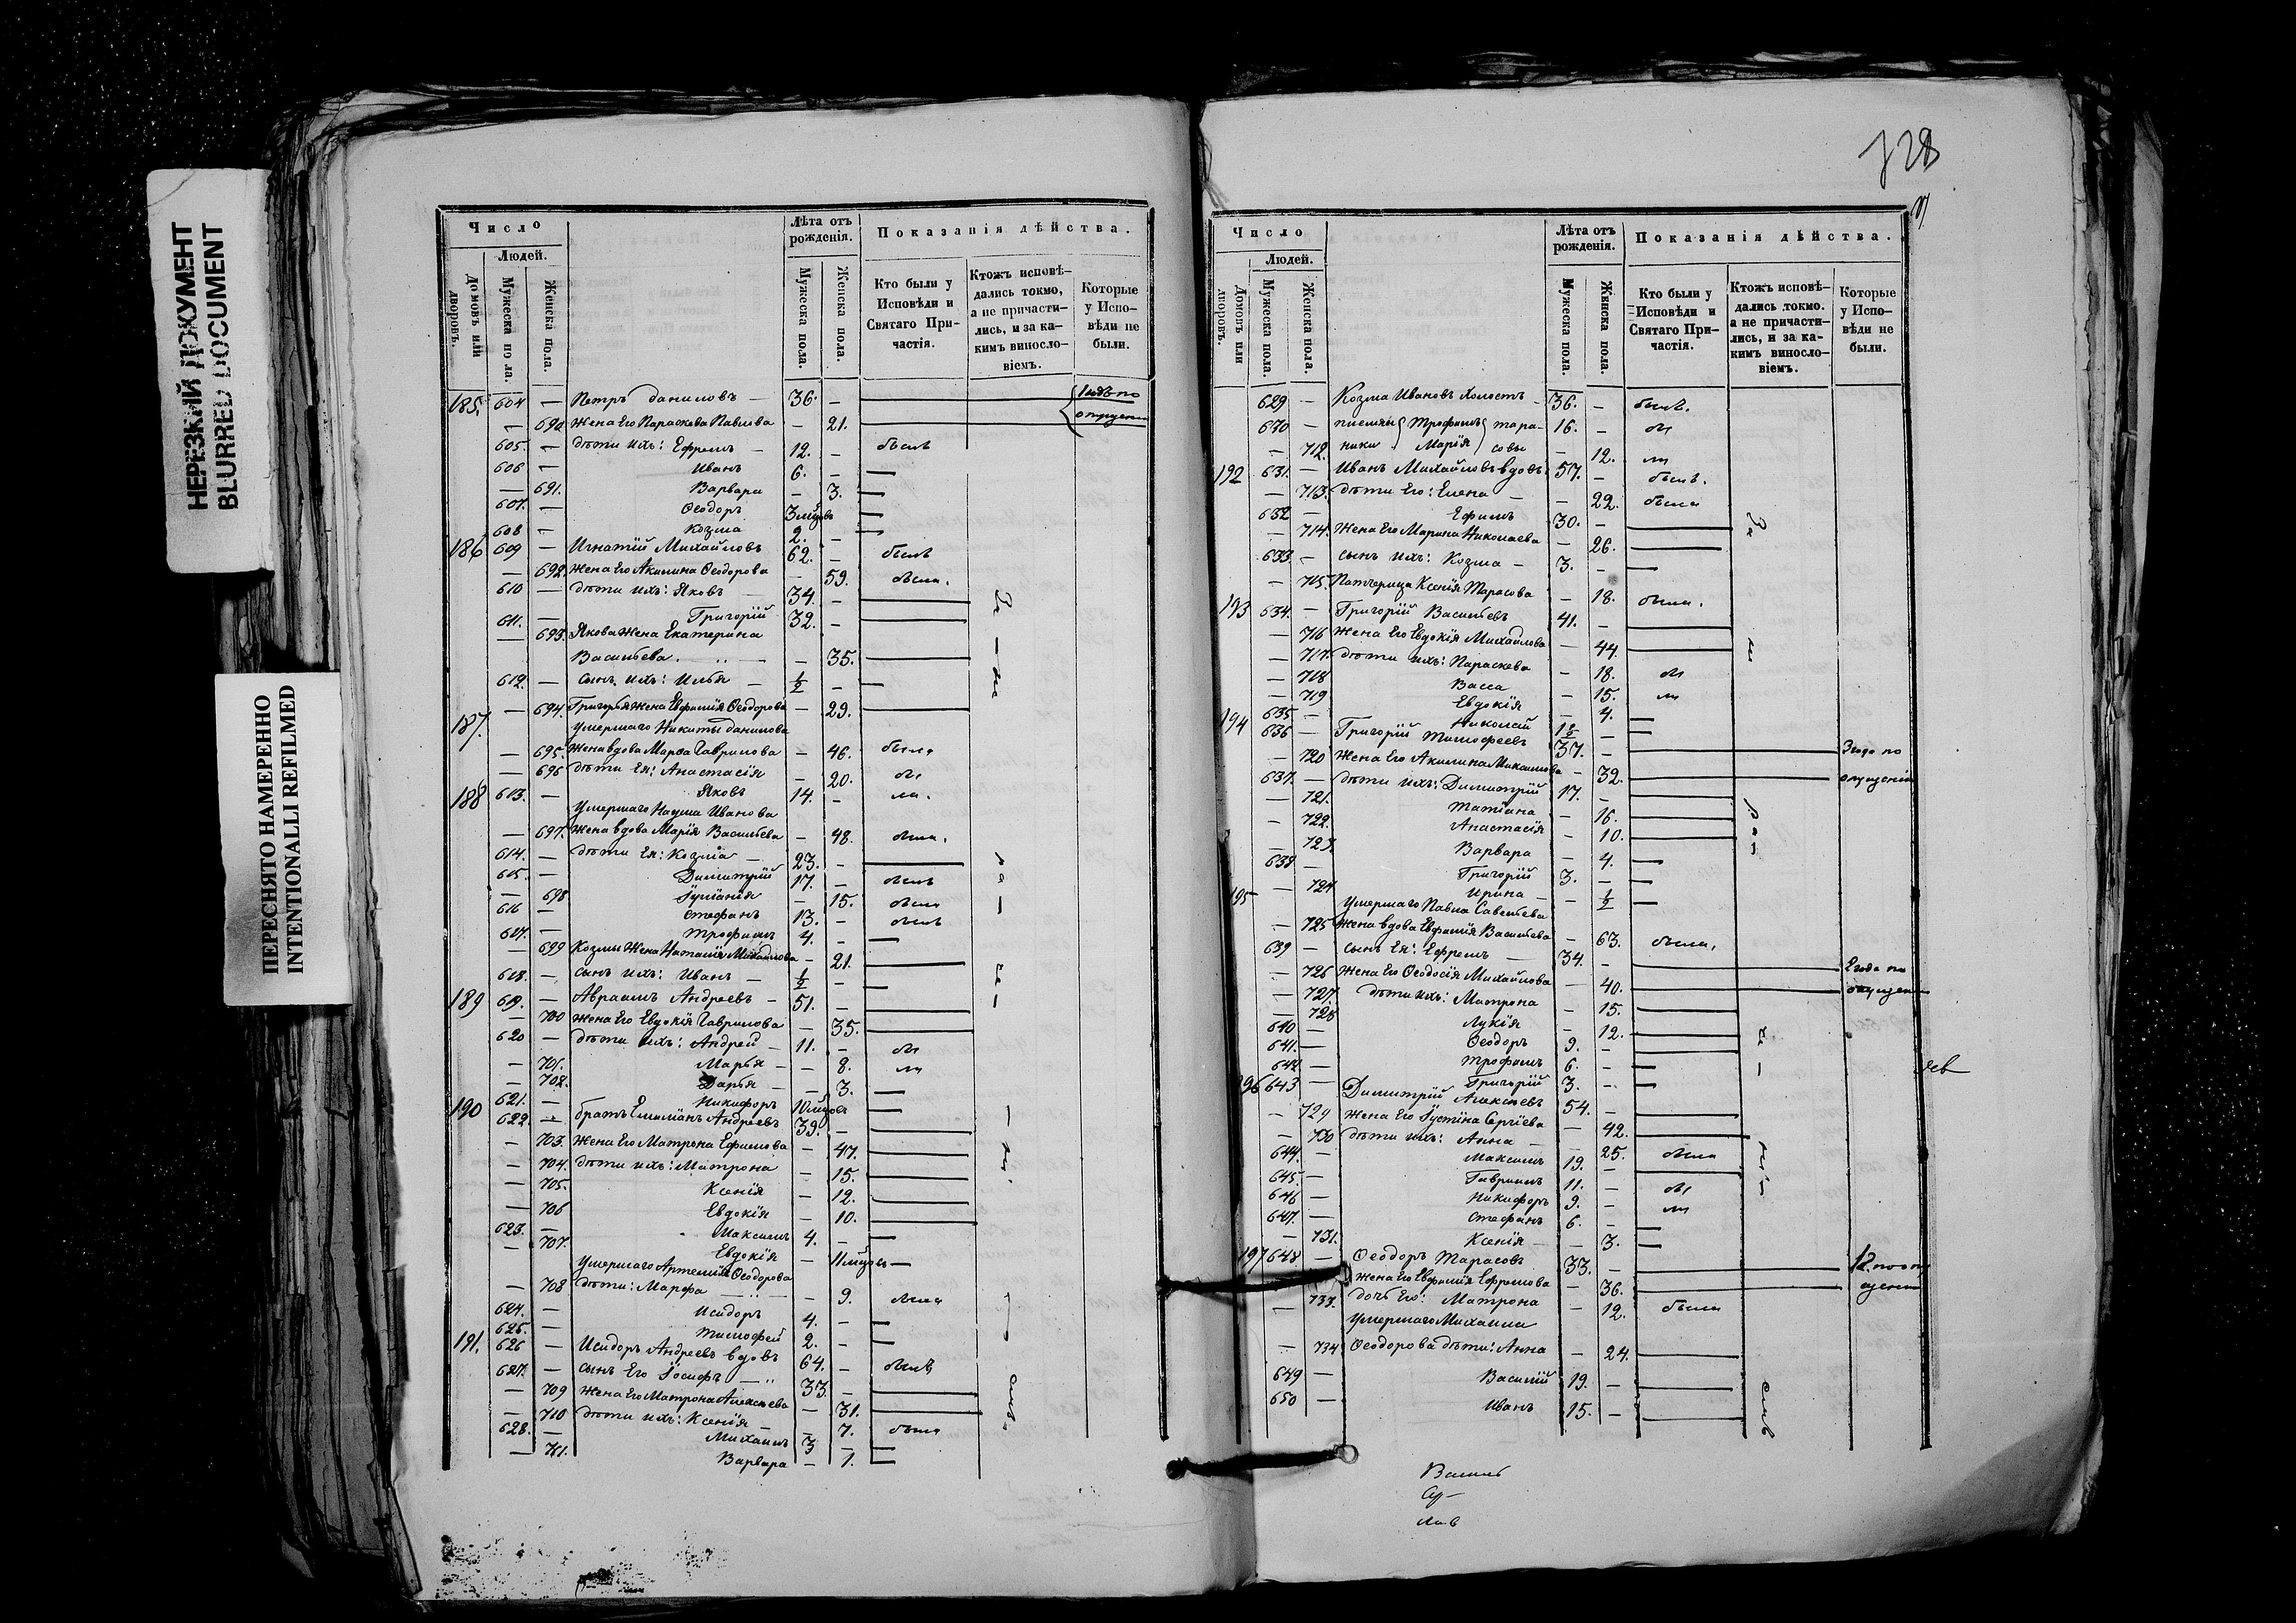 НЕРЕЗКИЙ ДОКУМЕНТ
BLURRED DOCUMENT
ПЕРЕСНЯТО НАМЕРЕННО
INTENTIONALLI REFILMED
Число
Людей.
Домовъ или дворовъ.
Мужеска пола.
Женска пола.
Лѣта отъ рожденія.
Мужеска пола.
Женска пола.
Показанія дѣйства.
Кто были у Исповѣди и Святаго Причастія.
Ктожъ исповѣ-
дались токмо,
а не причасти-
лись, и за ка-
кимъ винословіемъ.
Которые у Исповѣди не были.
185. 604 — Петръ Даниловъ — 36. —
— 690 Жена Его Параскева Павлова — 21.
605. — дѣти ихъ: Ефремъ — 12. — былъ
606 — Иванъ 6. —
— 691. Варвара — 3. —
607. — Ѳеодоръ 3 мѣцовъ
608 — Козма 2. —
186 609 — Игнатій Михайловъ 62. — былъ
— 692. Жена Его Акилина Ѳеодорова — 59. была.
610 — дѣти ихъ: Яковъ — 34. —
611. — Григорій 32. —
— 693. Якова Жена Екатерина
Васильева. — 35.
612. — сынъ ихъ: Илья — 1/2 —
— 694. Григорія Жена Евфимія Ѳеодорова — 29.
187. Умершаго Никиты Данилова
— 695. Жена вдова Марѳа Гаврилова — 46. была
— 696 дѣти Ея: Анастасія — 20.
613. — Яковъ 14. —
188 Умершаго Наума Иванова
— 697. Жена вдова Марія Васильева — 48. была.
614. — дѣти Ея: Козма — 23. —
615. — Димитрій 17. — былъ
— 698 Іуліанія — 15. была
616 — Стефанъ 13. — былъ
617. — Трофимъ 4. —
— 699 Козмы Жена Наталія Михайлова — 21.
618. — сынъ ихъ: Иванъ — 1/2 —
189 619. — Авраамъ Андреевъ — 51. —
— 700 Жена Его Евдокія Гаврилова — 35.
620 — дѣти ихъ: Андрей — 11. —
— 701. Марья — 8.
— 702. Дарья — 3. —
621. — Никифоръ 10 мѣцовъ
190 622 — братъ Емиліанъ Андреевъ 39. —
— 703. Жена Его Матрона Ефимова — 47.
— 704. дѣти ихъ: Матрона — 15.
— 705. Ксенія — 12.
— 706 Евдокія — 10.
623. — Максимъ 4. —
— 707. Евдокія — 11 мѣцовъ —
Умершаго Артемія Ѳеодорова
— 708 дѣти: Марфа — 9. была
624. — Исидоръ 4. —
625. — Тимофей 2. —
191. 626 — Исидоръ Андреевъ вдовъ 64. — былъ
627. — сынъ Его Іосифъ — 33 —
— 709 Жена Его Матрона Алексѣева — 31.
— 710 дѣти ихъ: Ксенія — 7. была
628. — Михаилъ 3 —
— 711. Варвара — 1. —
728
Число
Людей.
Домовъ или дворовъ.
Мужеска пола.
Женска пола.
Лѣта отъ рожденія.
Мужеска пола.
Женска пола.
Показанія дѣйства.
Кто были у Исповѣди и Святаго Причастія.
Ктожъ исповѣ-
дались токмо.
а не причасти-
лись, и за ка-
кимъ винословіемъ.
Которые у Исповѣди не были.
629 — Козма Ивановъ Холостъ — 36. — былъ.
630 — племян Трофимъ тара- 16. —
— 712. ники Марія совы — 12.
192 631. — Иванъ Михайловъ вдовъ 57. — былъ.
— 713. дѣти Его: Елена — 22. была
632 — Ефимъ 30. —
— 714. Жена Его Марина Николаева — 26.
633. — сынъ ихъ: Козма — 3. —
— 715. Патчерица Ксенія Тарасова — 18. была.
193 634. — Григорій Васильевъ 41. —
— 716 Жена Его Евдокія Михайлова — 44.
— 717. дѣти ихъ: Параскева — 18.
— 718 Васса — 15.
— 719 Евдокія — 4. —
635 — Николай 1 1/2 —
194 636 — Григорій Тимофеевъ 37. — 3 года по
— 720 Жена Его Акилина Михаилова — 32. опущенію
637. — дѣти ихъ: Димитрій 17. —
— 721. Татіана — 16.
— 722. Анастасія — 10.
— 723 Варвара — 4. —
638 — Григорій 3. —
— 724 Ирина — 1/2 —
195 Умершаго Павла Савельева
— 725 Жена вдова Евфимія Васильева — 63. была.
639 — сынъ Ея: Ефремъ — 34. —
— 726 Жена Его Ѳеодосія Михайлова — 40.
— 727. дѣти ихъ: Матрона — 15.
— 728 Лукія — 12.
640 — Ѳеодоръ 9. —
641. — Трофимъ 6. —
642 — Григорій 3. —
196 643 — Димитрій Алексѣевъ 54. —
— 729 Жена Его Іустина Сергіева — 42.
— 730 дѣти ихъ: Анна — 25. была
644. — Максимъ 19. —
645. — Гавріилъ 11. —
646 — Никифоръ 9. —
647. — Стефанъ 6. —
— 731. Ксенія — 3. —
197 648 — Ѳеодоръ Тарасовъ 33. —
Жена Его Евфимія Ефремова — 36.
— 733. дочь Его: Матрона — 12. была
Умершаго Михаила
— 734 Ѳеодорова дѣти: Анна — 24.
649 — Василій 19. —
650 — Иванъ 15. —